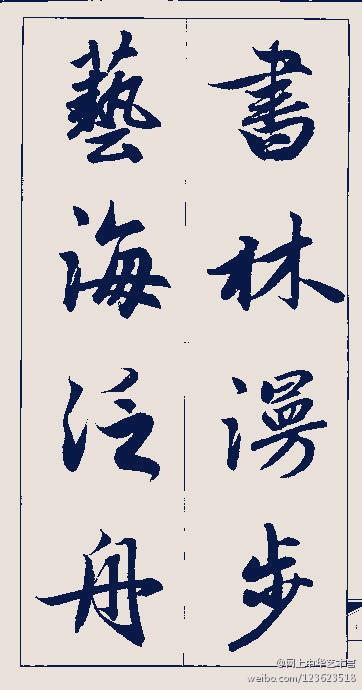 書林漫步
藝海泛舟
@网上中华艺术宫
weibo.com/123623518